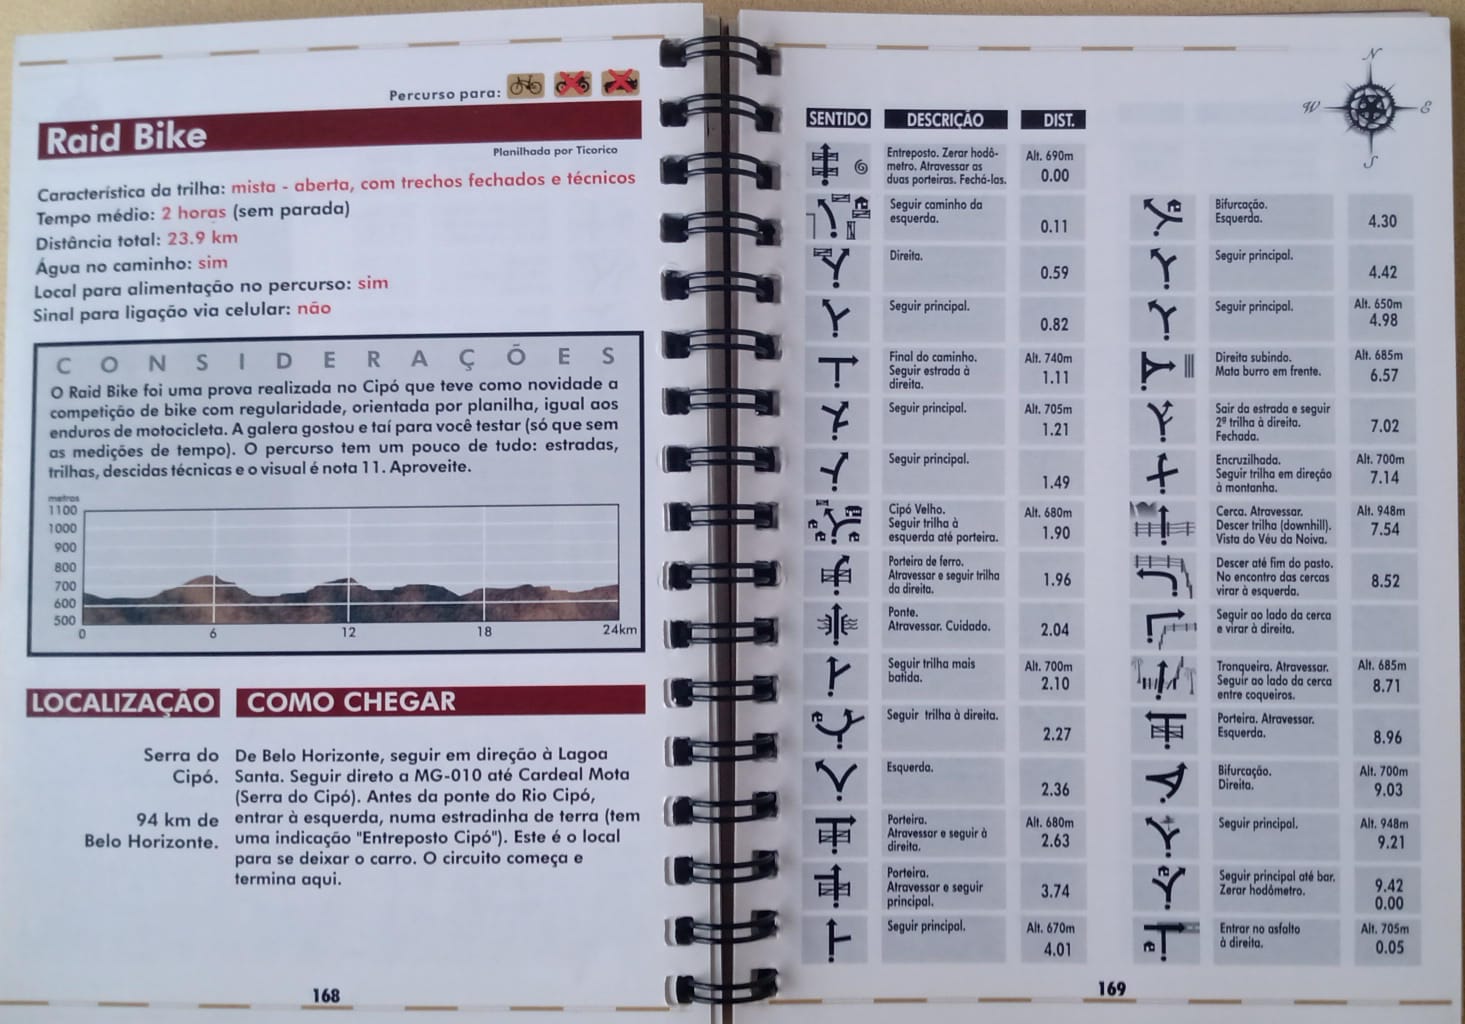 Percurso para:
Raid Bike
Planilhada por Ticorico
Característica da trilha: mista - aberta, com trechos fechados e técnicos
Tempo médio: 2 horas (sem parada)
Distância total: 23.9 km
Água no caminho: sim
Local para alimentação no percurso: sim
Sinal para ligação via celular: não
CONSIDERAÇÕES
O Raid Bike foi uma prova realizada no Cipó que teve como novidade a
competição de bike com regularidade, orientada por planilha, igual aos
enduros de motocicleta. A galera gostou e taí para você testar (só que sem
as medições de tempo). O percurso tem um pouco de tudo: estradas,
trilhas, descidas técnicas e o visual é nota 11. Aproveite.
metros
1100
1000
900
800
700
600
500
0 6 12 18 24km
LOCALIZAÇÃO
Serra do
Cipó.
94 km de
Belo Horizonte.
COMO CHEGAR
De Belo Horizonte, seguir em direção à Lagoa
Santa. Seguir direto a MG-010 até Cardeal Mota
(Serra do Cipó). Antes da ponte do Rio Cipó,
entrar à esquerda, numa estradinha de terra (tem
uma indicação "Entreposto Cipó"). Este é o local
para se deixar o carro. O circuito começa e
termina aqui.
168
N
W E
S
SENTIDO DESCRIÇÃO DIST.
Entreposto. Zerar hodô-
metro. Atravessar as
duas porteiras. Fechá-las.
Alt. 690m
0.00
Seguir caminho da
esquerda.
0.11
Direita.
0.59
Seguir principal.
0.82
Final do caminho.
Seguir estrada à
direita.
Alt. 740m
1.11
Seguir principal.
Alt. 705m
1.21
Seguir principal.
1.49
e e
Cipó Velho.
Seguir trilha à
esquerda até porteira.
Alt. 680m
1.90
Porteira de ferro.
Atravessar e seguir trilha
da direita.
1.96
Ponte.
Atravessar. Cuidado.
2.04
Seguir trilha mais
batida.
Alt. 700m
2.10
e
Seguir trilha à direita.
2.27
Esquerda.
2.36
Porteira.
Atravessar e seguir à
direita.
Alt. 680m
2.63
Porteira.
Atravessar e seguir
principal.
3.74
Seguir principal.
Alt. 670m
4.01
e
Bifurcação.
Esquerda.
4.30
Seguir principal.
4.42
Seguir principal.
Alt. 650m
4.98
Direita subindo.
Mata burro em frente.
Alt. 685m
6.57
Sair da estrada e seguir
2ª trilha à direita.
Fechada.
7.02
Encruzilhada.
Seguir trilha em direção
à montanha.
Alt. 700m
7.14
Cerca. Atravessar.
Descer trilha (downhill).
Vista do Véu da Noiva.
Alt. 948m
7.54
Descer até fim do pasto.
No encontro das cercas
virar à esquerda.
8.52
Seguir ao lado da cerca
e virar à direita.
Tronqueira. Atravessar.
Seguir ao lado da cerca
entre coqueiros.
Alt. 685m
8.71
Porteira. Atravessar.
Esquerda.
8.96
Bifurcação.
Direita.
Alt. 700m
9.03
Seguir principal.
Alt. 948m
9.21
e
Seguir principal até bar.
Zerar hodômetro.
9.42
0.00
e
Entrar no asfalto
à direita.
Alt. 705m
0.05
169